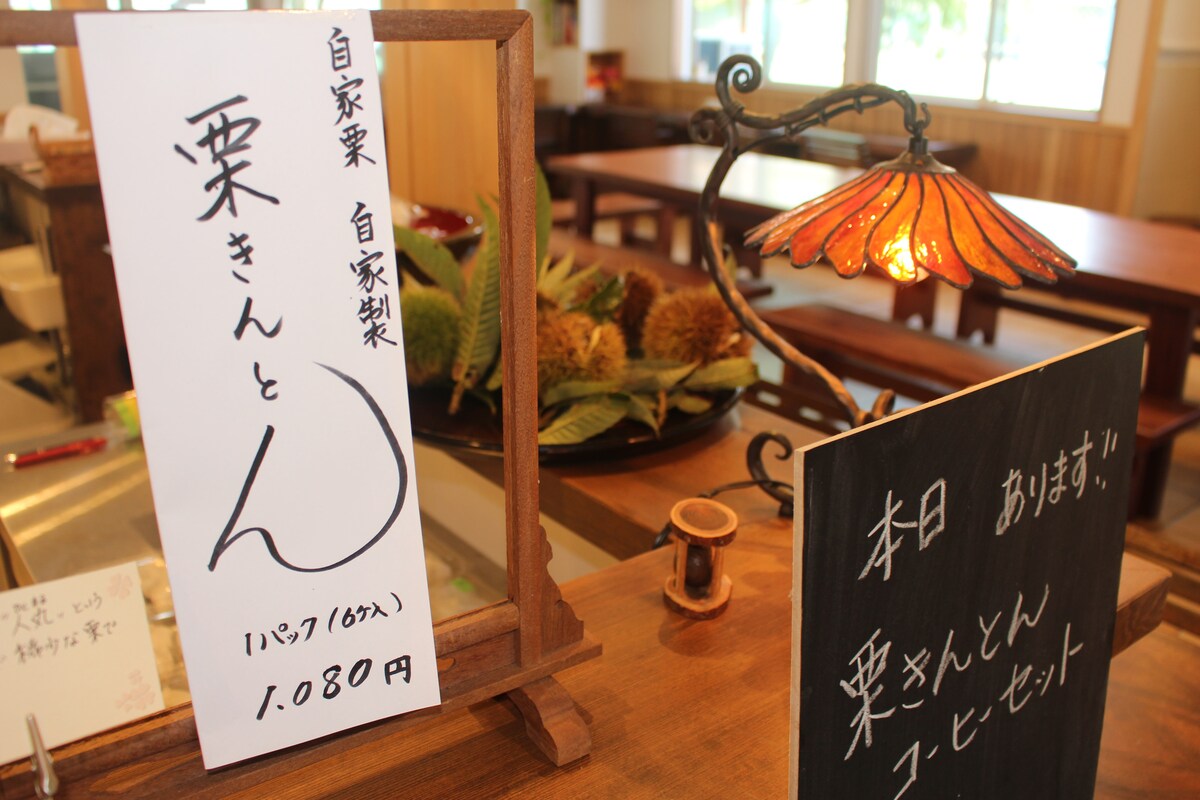 自家栗 自家製
栗きんとん
1パック(6ケ入)
1.080円
人丸 という
な栗で
本日 あります!!
栗きんとん
コーヒーセット